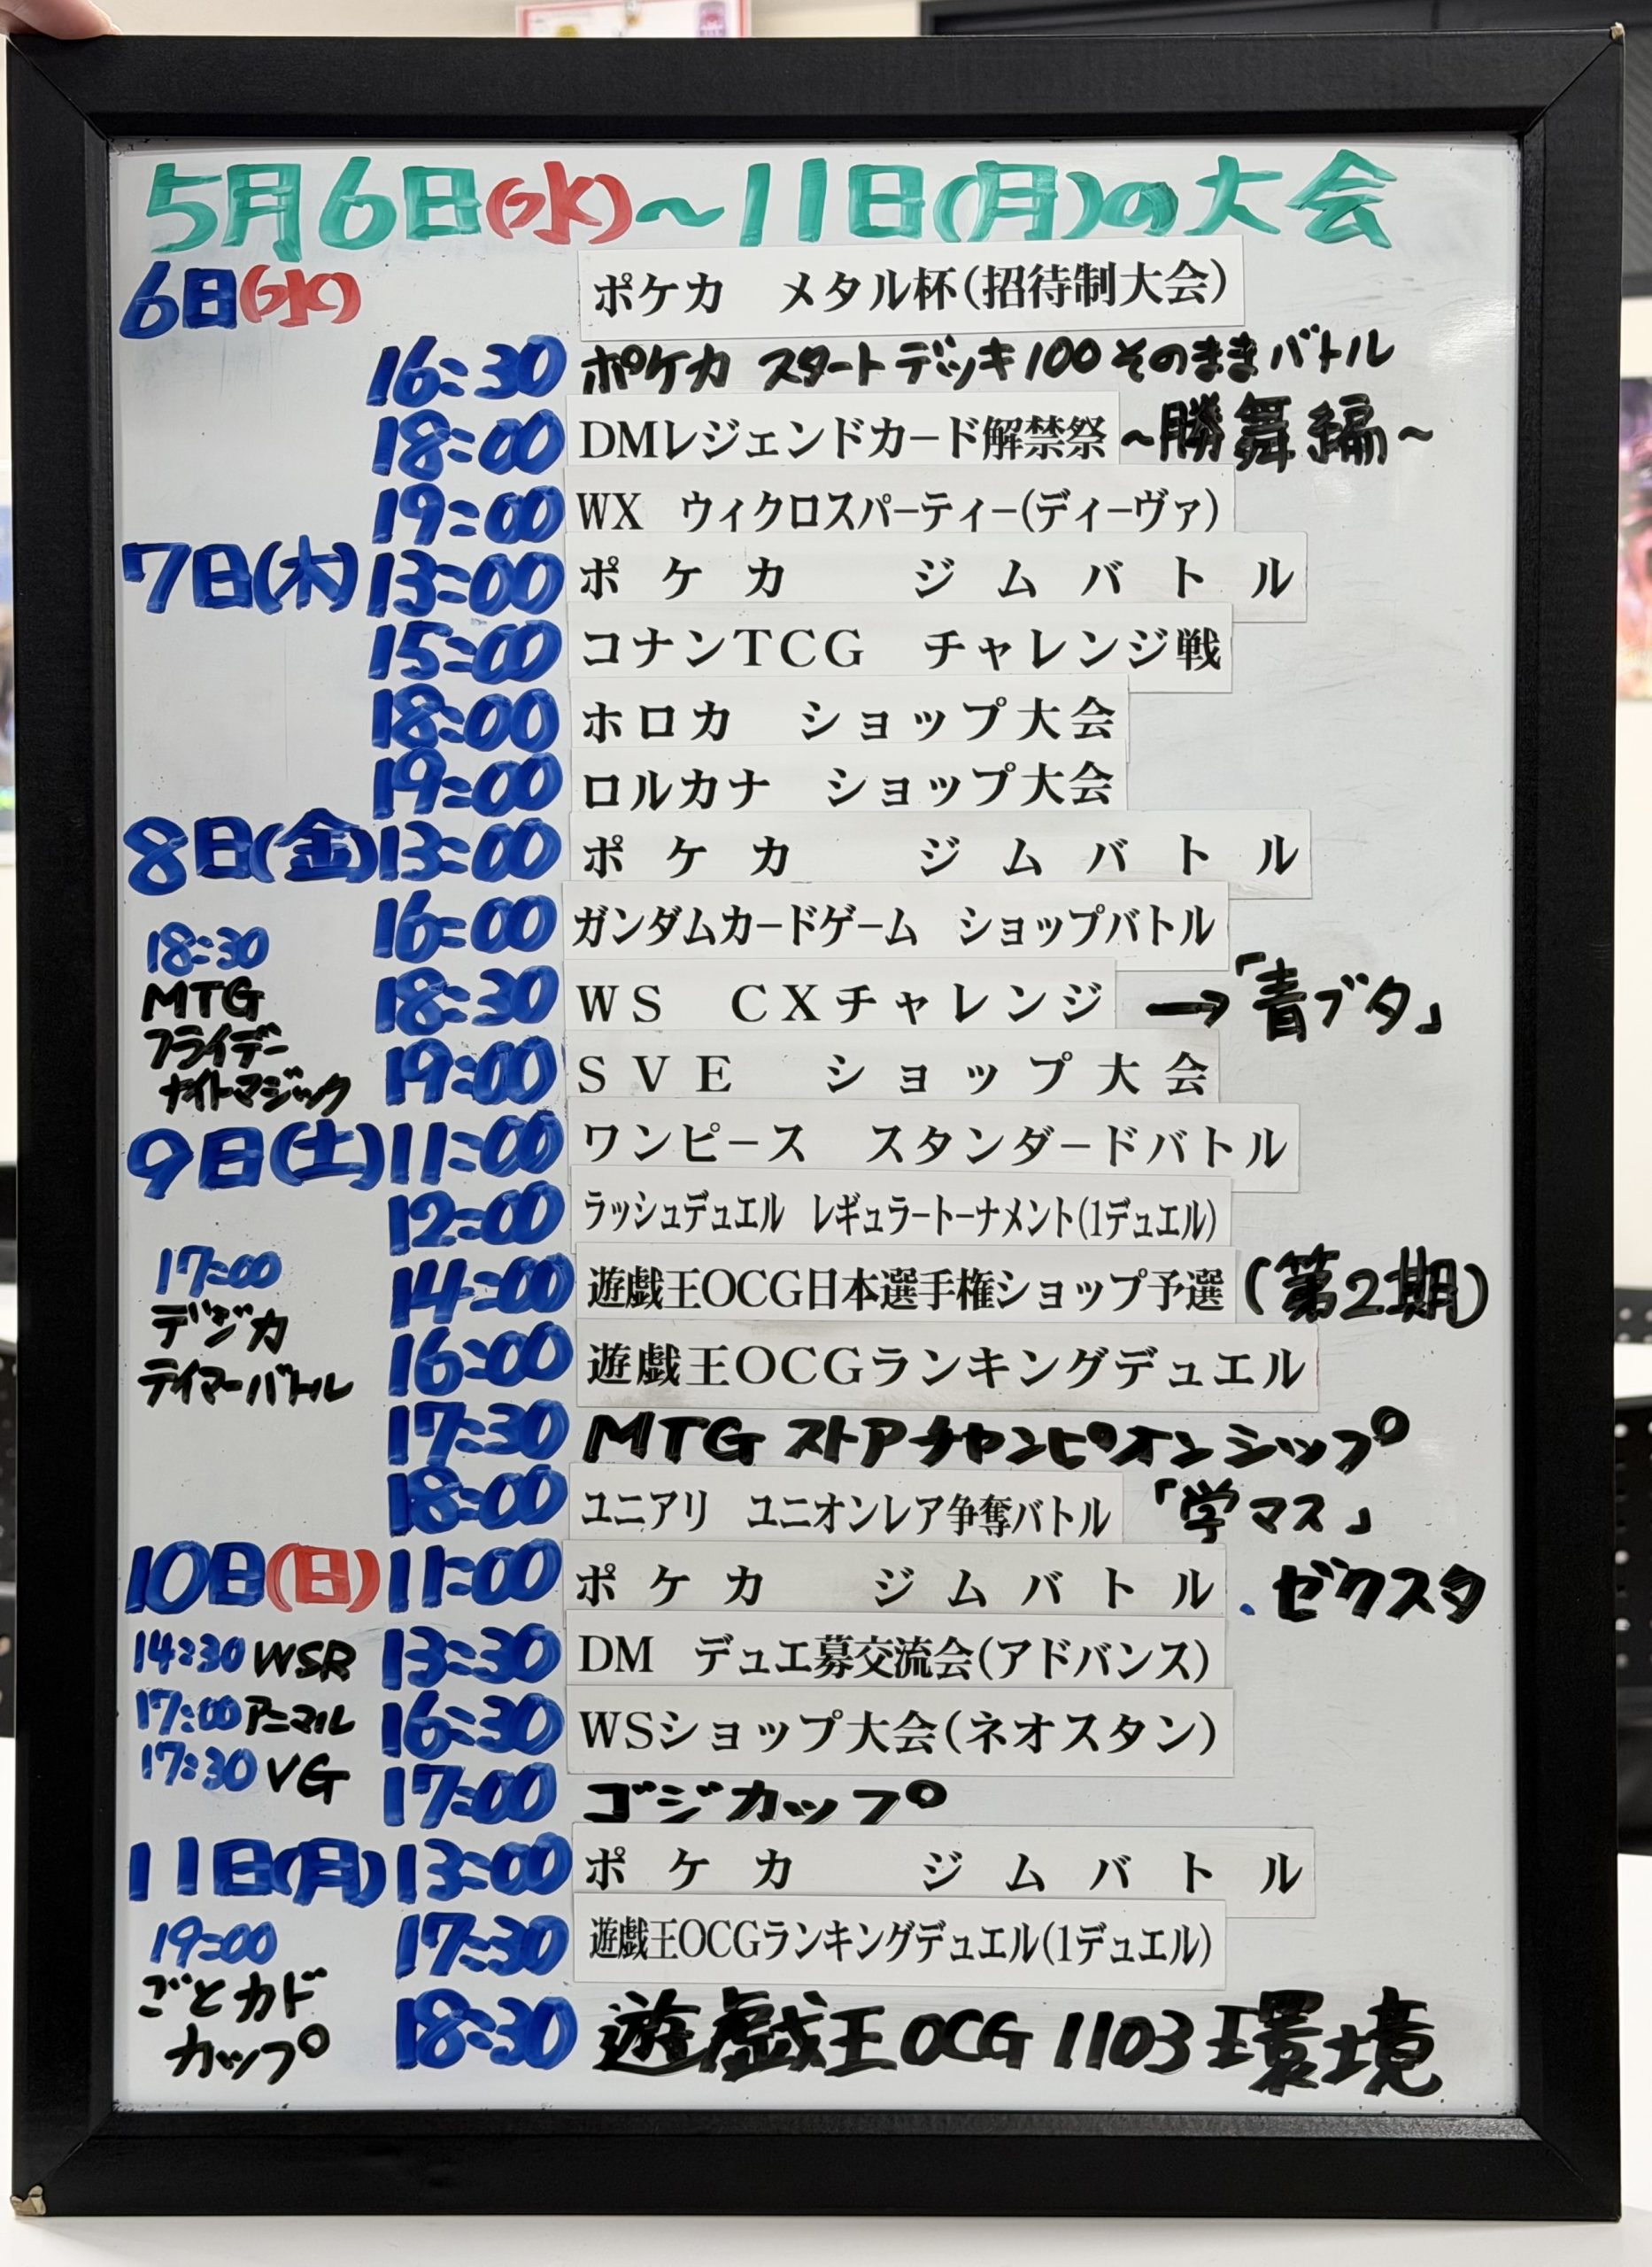 5月6日(水)～11日(月)の大会
6日(水) ポケカ メタル杯(招待制大会)
16:30 ポケカ スタートデッキ100そのままバトル
18:00 DMレジェンドカード解禁祭 ~勝舞編~
19:00 WX ウィクロスパーティー(ディーヴァ)
7日(木) 13:00 ポケカ ジムバトル
15:00 コナンTCG チャレンジ戦
18:00 ホロカ ショップ大会
19:00 ロルカナ ショップ大会
8日(金) 13:00 ポケカ ジムバトル
16:00 ガンダムカードゲーム ショップバトル
18:30 WS CXチャレンジ →「青ブタ」
19:00 SVE ショップ大会
18:30
MTG
フライデー
ナイトマジック
9日(土) 11:00 ワンピース スタンダードバトル
12:00 ラッシュデュエル レギュラートーナメント(1デュエル)
14:00 遊戯王OCG日本選手権ショップ予選 (第2期)
16:00 遊戯王OCGランキングデュエル
17:30 MTG ストアチャンピオンシップ
18:00 ユニアリ ユニオンレア争奪バトル 「学マス」
17:00
デジカ
テイマーバトル
10日(日) 11:00 ポケカ ジムバトル ・ゼクスタ
13:30 DM デュエ募交流会(アドバンス)
16:30 WSショップ大会(ネオスタン)
17:00 ゴジカップ
14:30 WSR
17:00 アニマル
17:30 VG
11日(月) 13:00 ポケカ ジムバトル
17:30 遊戯王OCGランキングデュエル(1デュエル)
18:30 遊戯王OCG 1103環境
19:00
ごとカド
カップ